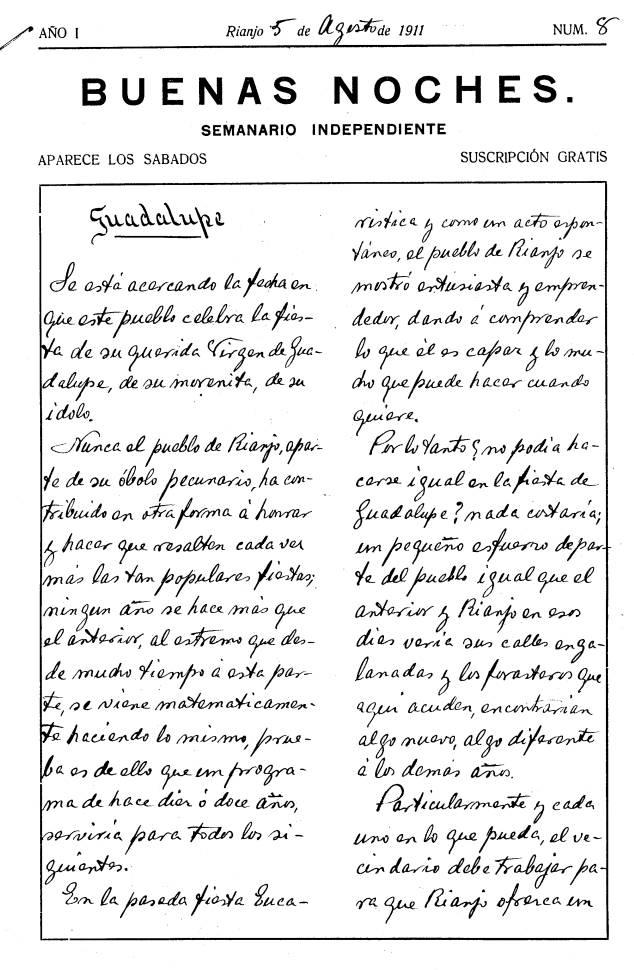 AÑO I
Rianjo 5 de Agosto de 1911
NUM. 8
BUENAS NOCHES.
SEMANARIO INDEPENDIENTE
APARECE LOS SABADOS
SUSCRIPCIÓN GRATIS
Guadalupe
Se está acercando la fecha en
que este pueblo celebra la fies-
ta de su querida Virgen de Gua-
dalupe, de su morenita, de su
idolo.
Nunca el pueblo de Rianjo, apar-
te de su óbolo pecunario, ha con-
tribuido en otra forma á honrar
y hacer que resalten cada vez
más las tan populares fiestas;
ningun año se hace más que
el anterior, al estremo que des-
de mucho tiempo á esta par-
te, se viene matematicamen-
te haciendo lo mismo, prue-
ba es de ello que un progra-
ma de hace diez ó doce años,
serviria para todos los si-
guientes.
En la pasada fiesta Euca-
ristica y como un acto espon-
táneo, el pueblo de Rianjo se
mostró entusiasta y empren-
dedor, dando á comprender
lo que él es capaz y lo mu-
cho que puede hacer cuando
quiere.
Por lo tanto ¿no podia ha-
cerse igual en la fiesta de
Guadalupe? nada costaría;
un pequeño esfuerzo de par-
te del pueblo igual que el
anterior y Rianjo en esos
dias veria sus calles enga-
lanadas y los forasteros que
aqui acuden, encontrarian
algo nuevo, algo diferente
á los demás años.
Particularmente y cada
uno en lo que pueda, el ve-
cindario debe trabajar pa-
ra que Rianjo ofrezca un